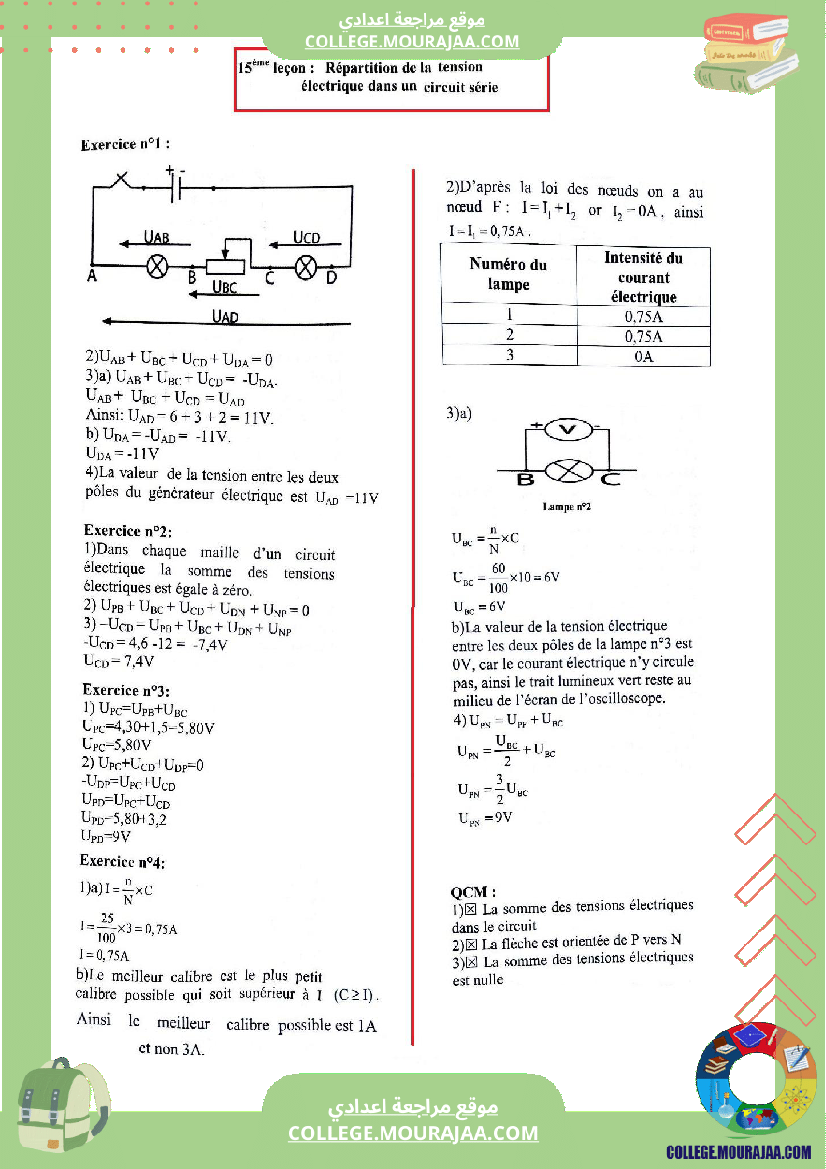 موقع مراجعة اعدادي
COLLEGE.MOURAJAA.COM
15ème leçon : Répartition de la tension
électrique dans un circuit série
Exercice n°1 :
+ -
UAB UCD
A B C D
UBC
UAD
2)UAB + UBC + UCD + UDA = 0
3)a) UAB + UBC + UCD = -UDA.
UAB + UBC + UCD = UAD
Ainsi: UAD = 6 + 3 + 2 = 11V.
b) UDA = -UAD = -11V.
UDA = -11V
4)La valeur de la tension entre les deux
pôles du générateur électrique est UAD =11V
Exercice n°2:
1)Dans chaque maille d'un circuit
électrique la somme des tensions
électriques est égale à zéro.
2) UPB + UBC + UCD + UDN + UNP = 0
3) –UCD = UPB + UBC + UDN + UNP
-UCD = 4,6 -12 = -7,4V
UCD = 7,4V
Exercice n°3:
1) UPC=UPB+UBC
UPC=4,30+1,5=5,80V
UPC=5,80V
2) UPC+UCD+UDP=0
-UDP=UPC+UCD
UPD=UPC+UCD
UPD=5,80+3,2
UPD=9V
Exercice n°4:
1)a) I = n/N × C
I = 25/100 ×3 = 0,75A
I = 0,75A
b)Le meilleur calibre est le plus petit
calibre possible qui soit supérieur à I (C ≥ I).
Ainsi le meilleur calibre possible est 1A
et non 3A.
2)D'après la loi des nœuds on a au
nœud F : I = I1 + I2 or I2 = 0A, ainsi
I = I1 = 0,75A.
Numéro du lampe Intensité du courant électrique
1 0,75A
2 0,75A
3 0A
3)a)
+ V -
B C
Lampe n°2
UBC = n/N ×C
UBC = 60/100 ×10 = 6V
UBC = 6V
b)La valeur de la tension électrique
entre les deux pôles de la lampe n°3 est
0V, car le courant électrique n'y circule
pas, ainsi le trait lumineux vert reste au
milieu de l'écran de l'oscilloscope.
4) UPN = UPF + UBC
UPN = UBC/2 + UBC
UPN = 3/2 UBC
UPN = 9V
QCM :
1)☒ La somme des tensions électriques
dans le circuit
2)☒ La flèche est orientée de P vers N
3)☒ La somme des tensions électriques
est nulle
موقع مراجعة اعدادي
COLLEGE.MOURAJAA.COM
COLLEGE.MOURAJAA.COM